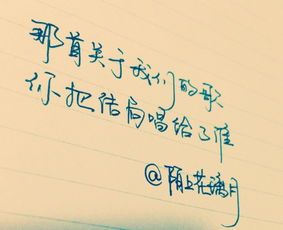 那首关于我们的歌
你把结局唱给了谁
@陌上花璃月